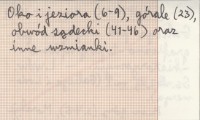 Oko i jeziora (6-9), górale (23),
obwód sądecki (41-46) oraz
inne wzmianki.